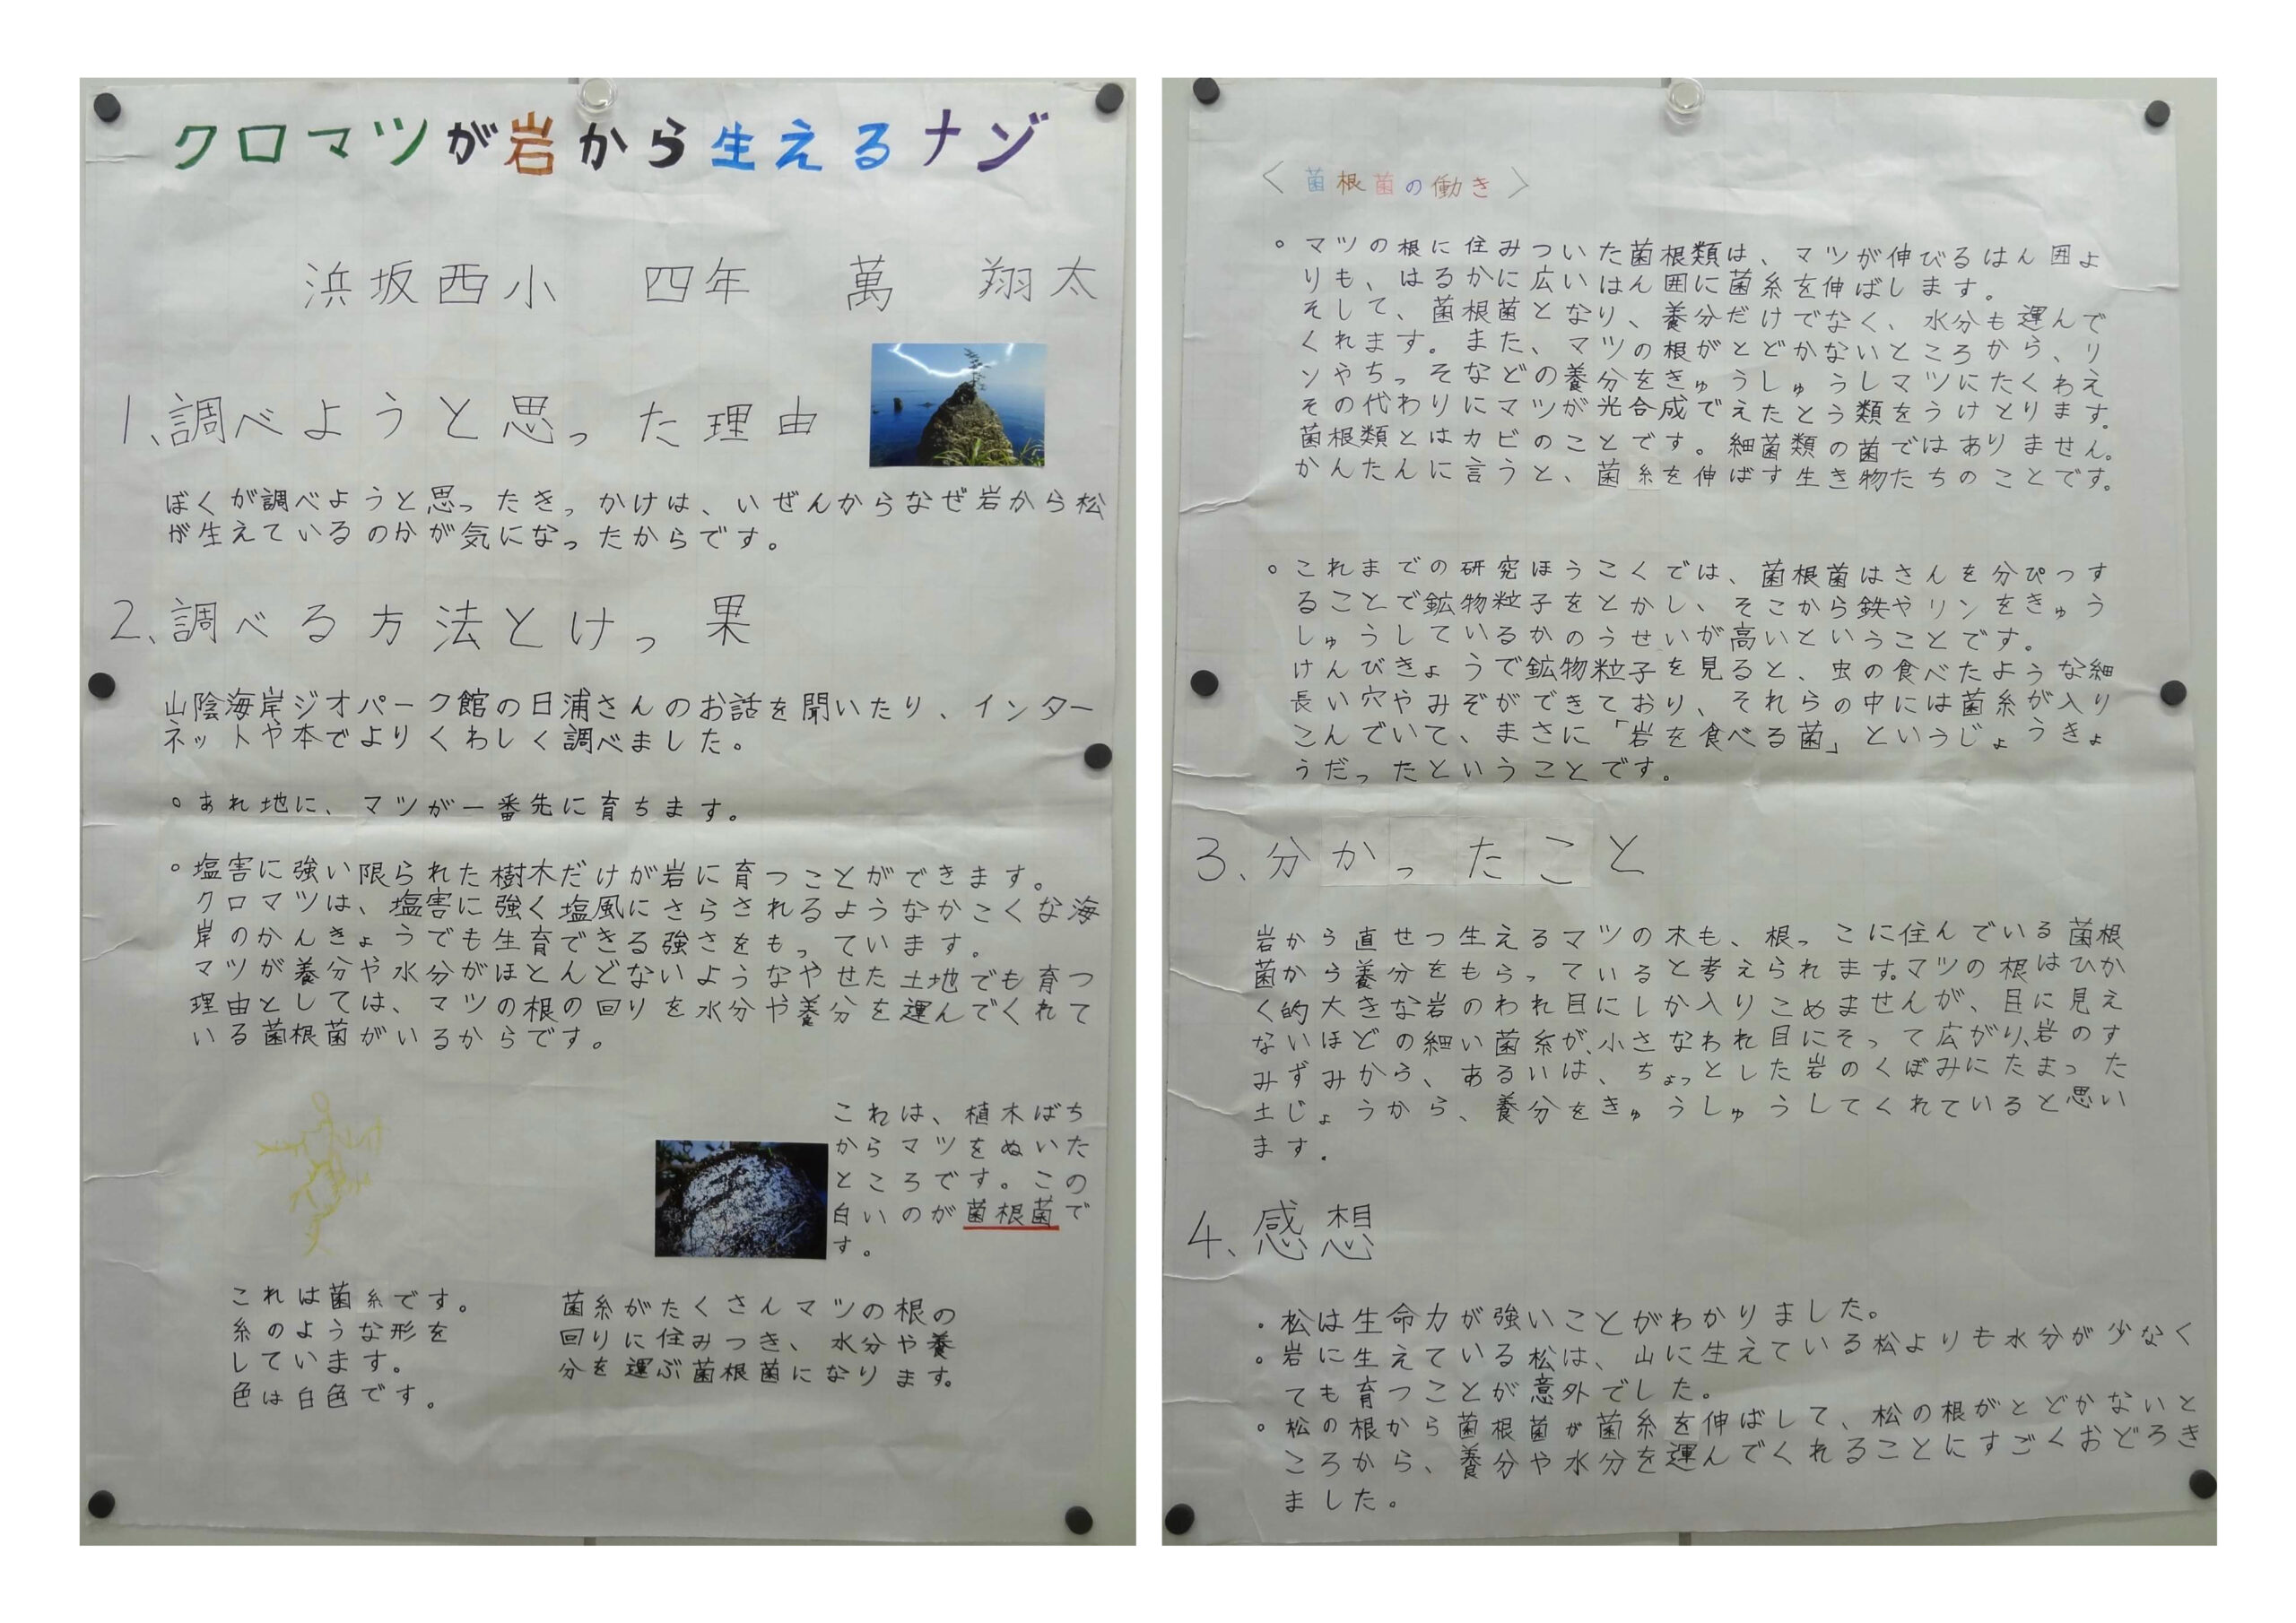 クロマツが岩から生えるナゾ
浜坂西小 四年 萬 翔太
1、調べようと思った理由
ぼくが調べようと思ったきっかけは、いぜんからなぜ岩から松
が生えているのかが気になったからです。
2、調べる方法とけっ果
山陰海岸ジオパーク館の日浦さんのお話を聞いたり、インター
ネットや本でよりくわしく調べました。
。あれ地に、マツが一番先に育ちます。
。塩害に強い限られた樹木だけが岩に育つことができます。
クロマツは、塩害に強く塩風にさらされるようなかこくな海
岸のかんきょうでも生育できる強さをもっています。
マツが養分や水分がほとんどないようなやせた土地でも育つ
理由としては、マツの根の回りを水分や養分を運んでくれて
いる菌根菌がいるからです。
これは、植木ばち
からマツをぬいた
ところです。この
白いのが菌根菌で
す。
これは菌糸です。
糸のような形を
しています。
色は白色です。
菌糸がたくさんマツの根の
回りに住みつき、水分や養
分を運ぶ菌根菌になります。
〈菌根菌の働き〉
。マツの根に住みついた菌根類は、マツが伸びるはん囲よ
りも、はるかに広いはん囲に菌糸を伸ばします。
そして、菌根菌となり、養分だけでなく、水分も運んで
くれます。また、マツの根がとどかないところから、リ
ンやちっそなどの養分をきゅうしゅうしマツにたくわえ
その代わりにマツが光合成でえたとう類をうけとります。
菌根類とはカビのことです。細菌類の菌ではありません。
かんたんに言うと、菌糸を伸ばす生き物たちのことです。
。これまでの研究ほうこくでは、菌根菌はさんを分ぴっす
ることで鉱物粒子をとかし、そこから鉄やリンをきゅう
しゅうしているかのうせいが高いということです。
けんびきょうで鉱物粒子を見ると、虫の食べたような細
長い穴やみぞができており、それらの中には菌糸が入り
こんでいて、まさに「岩を食べる菌」というじょうきょ
うだったということです。
3、分かったこと
岩から直せつ生えるマツの木も、根っこに住んでいる菌根
菌から養分をもらっていると考えられます。マツの根はひか
く的大きな岩のわれ目にしか入りこめませんが、目に見え
ないほどの細い菌糸が、小さなわれ目にそって広がり、岩のす
みずみから、あるいは、ちょっとした岩のくぼみにたまった
土じょうから、養分をきゅうしゅうしてくれていると思い
ます。
4、感想
・松は生命力が強いことがわかりました。
。岩に生えている松は、山に生えている松よりも水分が少なく
ても育つことが意外でした。
。松の根から菌根菌が菌糸を伸ばして、松の根がとどかないと
ころから、養分や水分を運んでくれることにすごくおどろき
ました。